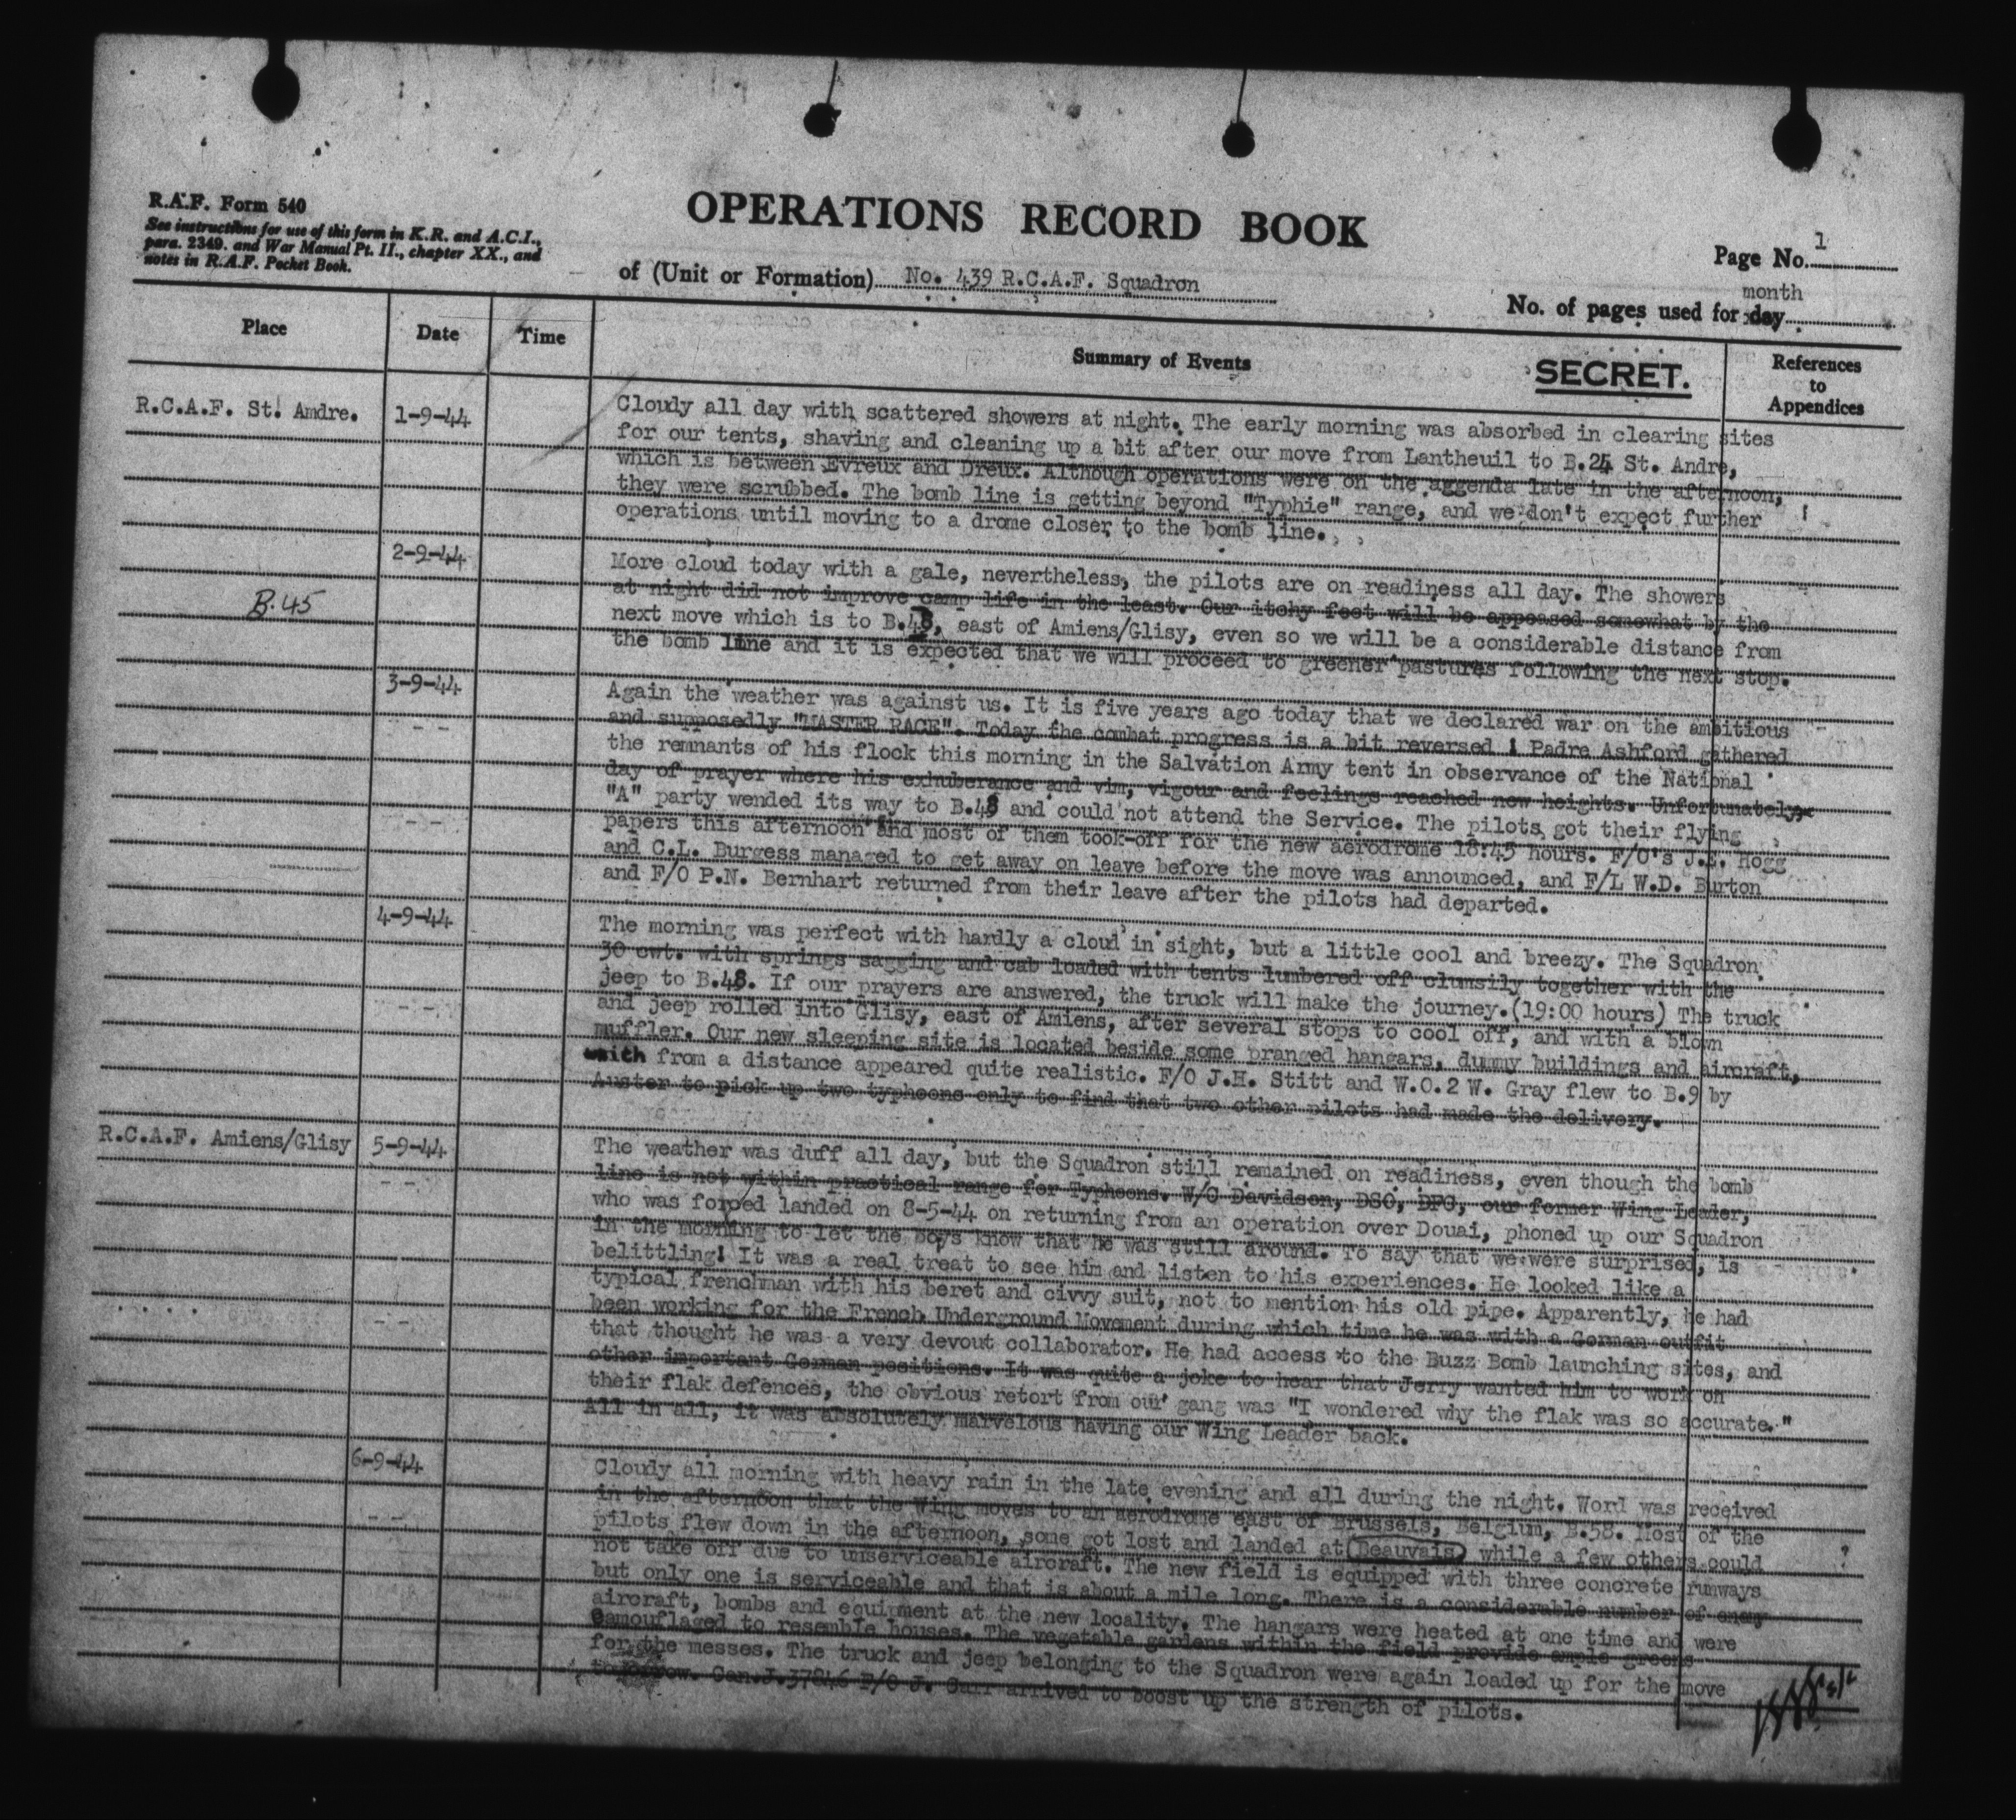 R.A.F. Form 540
See instructions for use of this form in K.R. and A.C.I.,
para. 2349. and War Manual Pt. II., chapter XX., and
notes in R.A.F. Pocket Book.
OPERATIONS RECORD BOOK
of (Unit or Formation) No. 439 R.C.A.F. Squadron
Page No. 1
month
No. of pages used for day
Place
Date
Time
Summary of Events
SECRET.
References
to
Appendices
R.C.A.F. St. Andre.
1-9-44
Cloudy all day with scattered showers at night. The early morning was absorbed in clearing sites
for our tents, shaving and cleaning up a bit after our move from Lantheuil to B.24 St. Andre,
which is between Evreux and Dreux. Although operations were on the aggenda late in the afternoon,
they were scrubbed. The bomb line is getting beyond "Typhie" range, and we don't expect further
operations until moving to a drome closer to the bomb line.
2-9-44
More cloud today with a gale, nevertheless, the pilots are on readiness all day. The showers
at night did not improve camp life in the least. Our itchy feet will be appeased somewhat by the
B.45
next move which is to B.48, east of Amiens/Glisy, even so we will be a considerable distance from
the bomb line and it is expected that we will proceed to greener pastures following the next stop.
3-9-44
Again the weather was against us. It is five years ago today that we declared war on the ambitious
and supposedly "MASTER RACE". Today the combat progress is a bit reversed ! Padre Ashford gathered
the remnants of his flock this morning in the Salvation Army tent in observance of the National
day of prayer where his exhuberance and vim, vigour and feelings reached new heights. Unfortunately,
"A" party wended its way to B.48 and could not attend the Service. The pilots got their flying
papers this afternoon and most of them took-off for the new aerodrome 18:45 hours. F/O's J.E. Hogg
and C.L. Burgess managed to get away on leave before the move was announced, and F/L W.D. Burton
and F/O P.N. Bernhart returned from their leave after the pilots had departed.
4-9-44
The morning was perfect with hardly a cloud in sight, but a little cool and breezy. The Squadron
30 cwt. with springs sagging and cab loaded with tents lumbered off clumsily together with the
jeep to B.48. If our prayers are answered, the truck will make the journey.(19:00 hours) The truck
and jeep rolled into Glisy, east of Amiens, after several stops to cool off, and with a blown
muffler. Our new sleeping site is located beside some pranged hangars, dummy buildings and aircraft,
which from a distance appeared quite realistic. F/O J.H. Stitt and W.O.2 W. Gray flew to B.9 by
Auster to pick up two typhoons only to find that two other pilots had made the delivery.
R.C.A.F. Amiens/Glisy
5-9-44
The weather was duff all day, but the Squadron still remained on readiness, even though the bomb
line is not within practical range for Typhoons. W/C Davidson, DSO, DFC, our former Wing Leader,
who was forced landed on 8-5-44 on returning from an operation over Douai, phoned up our Squadron
in the morning to let the boys know that he was still around. To say that we were surprised, is
belittling! It was a real treat to see him and listen to his experiences. He looked like a
typical frenchman with his beret and civvy suit, not to mention his old pipe. Apparently, he had
been working for the French Underground Movement during which time he was with a German outfit
that thought he was a very devout collaborator. He had access to the Buzz Bomb launching sites, and
other important German positions. It was quite a joke to hear that Jerry wanted him to work on
their flak defences, the obvious retort from our gang was "I wondered why the flak was so accurate."
All in all, it was absolutely marvelous having our Wing Leader back.
6-9-44
Cloudy all morning with heavy rain in the late evening and all during the night. Word was received
in the afternoon that the Wing moves to an aerodrome east of Brussels, Belgium, B.58. Most of the
pilots flew down in the afternoon, some got lost and landed at Beauvais while a few others could ?
not take off due to unserviceable aircraft. The new field is equipped with three concrete runways
but only one is serviceable and that is about a mile long. There is a considerable number of enemy
aircraft, bombs and equipment at the new locality. The hangars were heated at one time and were
Camouflaged to resemble houses. The vegetable gardens within the field provide ample greens
for the messes. The truck and jeep belonging to the Squadron were again loaded up for the move
tomorrow. Can.J.37846 F/O J. Carr arrived to boost up the strength of pilots.